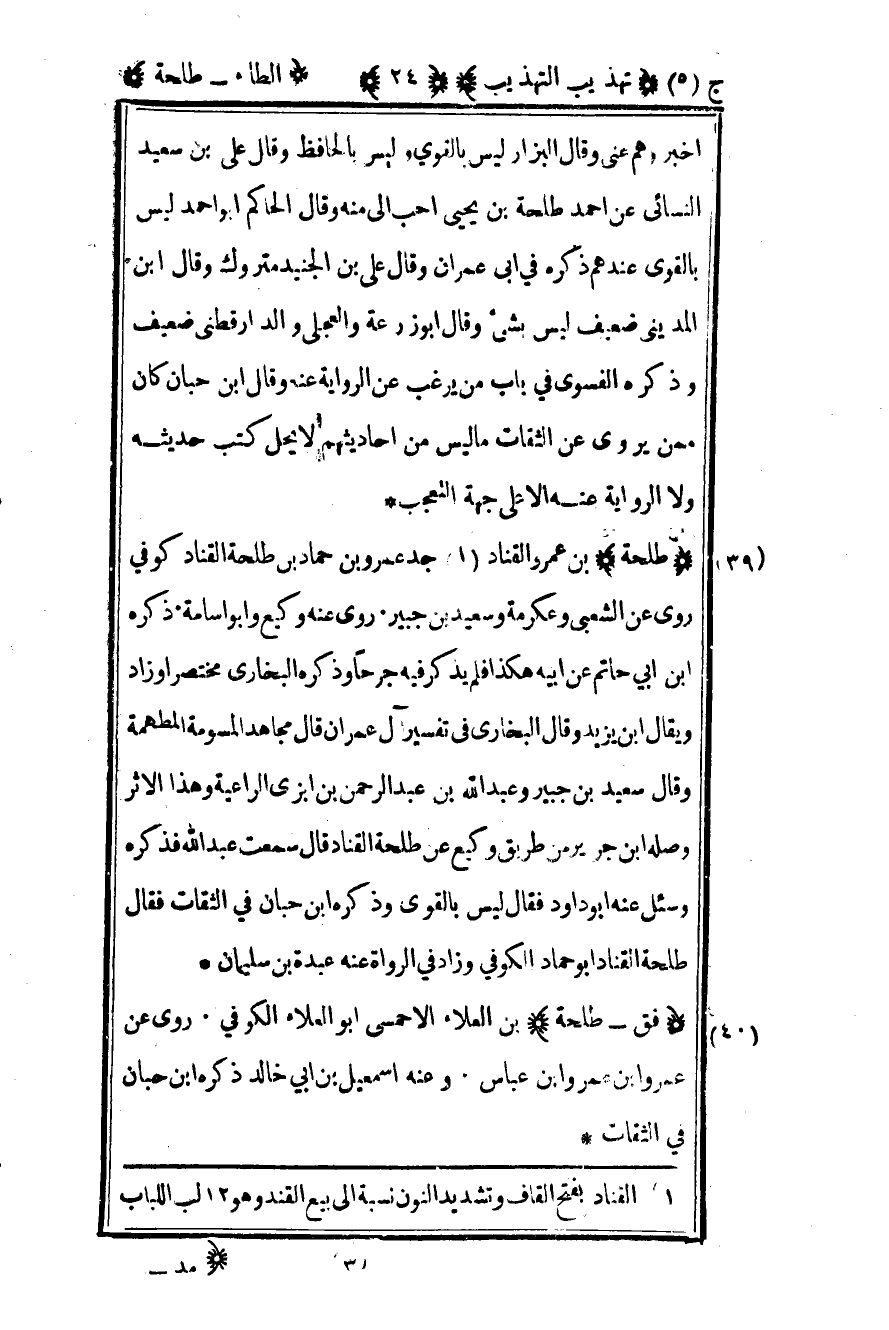 ج (٥) ﴿ تهذيب التهذيب ﴾ ﴿ ٢٤ ﴾ ﴿ الطاء ـ طلحة ﴾
اخبر وهم عنى وقال البزار ليس بالقوي وليس بالحافظ وقال على بن سعيد
النسائى عن احمد طلحة بن يحيى احب الى منه وقال الحاكم ابو احمد ليس
بالقوى عندهم ذكره في ابى عمران وقال على بن الجنيد متروك وقال ابن
المدينى ضعيف ليس بشئ وقال ابوزرعة والعجلى والدارقطنى ضعيف
وذكره الفسوى في باب من يرغب عن الرواية عنه وقال ابن حبان كان
ممن يروى عن الثقات ماليس من احاديثهم لا يحل كتب حديثه
ولا الرواية عنه الا على جهة التعجب *
(٣٩) ﴿ طلحة ﴾ بن عمرو القناد (١) جد عمرو بن حماد بن طلحة القناد كوفي
روى عن الشعبى وعكرمة وسعيد بن جبير ٠ روى عنه وكيع وابواسامة ٠ ذكره
ابن ابي حاتم عن ابيه هكذا فلم يذكر فيه جرحاً وذكره البخارى مختصرا وزاد
ويقال ابن يزيد وقال البخارى فى تفسير آل عمران قال مجاهد المسومة المطهمة
وقال سعيد بن جبير وعبدالله بن عبدالرحمن بن ابزى الراعية وهذا الاثر
وصله ابن جرير من طريق وكيع عن طلحة القناد قال سمعت عبدالله فذكره
وسئل عنه ابوداود فقال ليس بالقوى وذكره ابن حبان في الثقات فقال
طلحة القناد ابو حماد الكوفي وزاد في الرواة عنه عبدة بن سليمان *
(٤٠) ﴿ فق ـ طلحة ﴾ بن العلاء الاحمسى ابو العلاء الكوفي ٠ روى عن
عمر وابن عمر وابن عباس ٠ وعنه اسمعيل بن ابي خالد ذكره ابن حبان
في الثقات *
(١) القناد بفتح القاف وتشديد النون نسبة الى بيع القند وهو ١٢ لب اللباب
(٣) ﴿ مد ـ